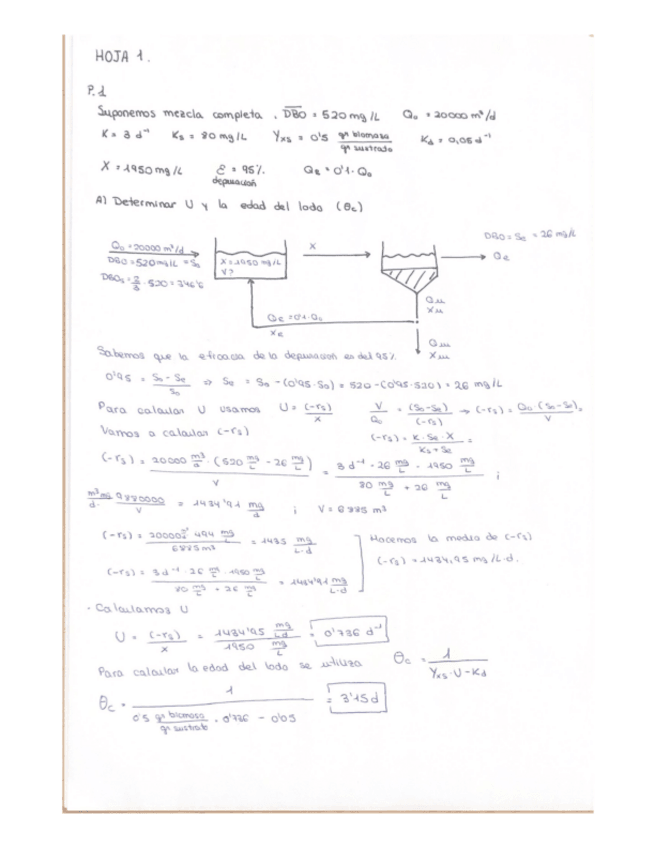 HOJA 1.
P.1
Suponemos mezcla completa. DBO = 520 mg/L Q₀ = 20000 m³/d
K = 3 d⁻¹ Ks = 80 mg/L Yxs = 0'5 gr biomasa / gr sustrato Kd = 0,05 d⁻¹
X = 1950 mg/L Ɛ depuración = 95% QR = 0'1 · Q₀
A) Determinar U y la edad del lodo (θc)
DBO = Se = 26 mg/L
Q₀ = 20000 m³/d
DBO = 520 mg/L = S₀
X = 1950 mg/L
V?
X
Qe
Qu
Xu
Qw
Xw
Sabemos que la eficacia de la depuración es del 95%
0'95 = (S₀ - Se) / S₀ ⇒ Se = S₀ - (0'95 · S₀) = 520 - (0'95 · 520) = 26 mg/L
Para calcular U usamos U = (-rs) / X V / Q₀ = (S₀ - Se) / (-rs) → (-rs) = Q₀ (S₀ - Se) / V =
Vamos a calcular (-rs) (-rs) = K · Se · X / (Ks + Se) =
(-rs) = 20000 m³/d · (520 mg/L - 26 mg/L) / V = 3 d⁻¹ · 26 mg/L · 1950 mg/L / (80 mg/L + 26 mg/L) ;
9880000 / V = 1434'91 mg/d ; V = 6885 m³
(-rs) = 20000 · 494 mg/L / 6885 m³ = 1435 mg/L·d
Hacemos la media de (-rs)
(-rs) = 1434,95 mg/L·d.
(-rs) = 3 d⁻¹ · 26 mg/L · 1950 mg/L / (80 mg/L + 26 mg/L) = 1434'91 mg/L·d
· Calculamos U
U = (-rs) / X = 1434'95 mg/L·d / 1950 mg/L = 0'736 d⁻¹
Para calcular la edad del lodo se utiliza θc = 1 / (Yxs · U - Kd)
θc = 1 / (0'5 gr biomasa / gr sustrato · 0'736 - 0'05) = 3'15 d